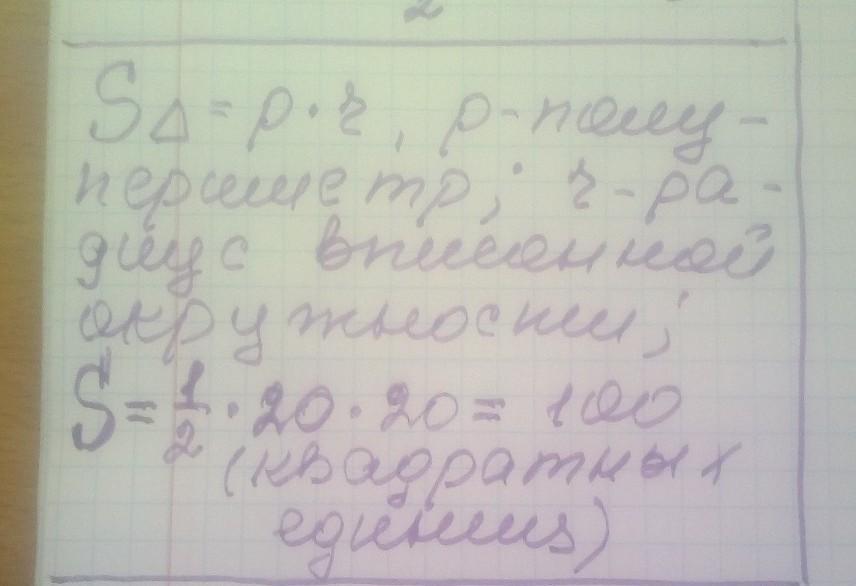 2
S△ = p · r, p - полу-
периметр; r - ра-
диус вписанной
окружности;
S = 1/2 · 20 · 20 = 100
(квадратных
единиц)